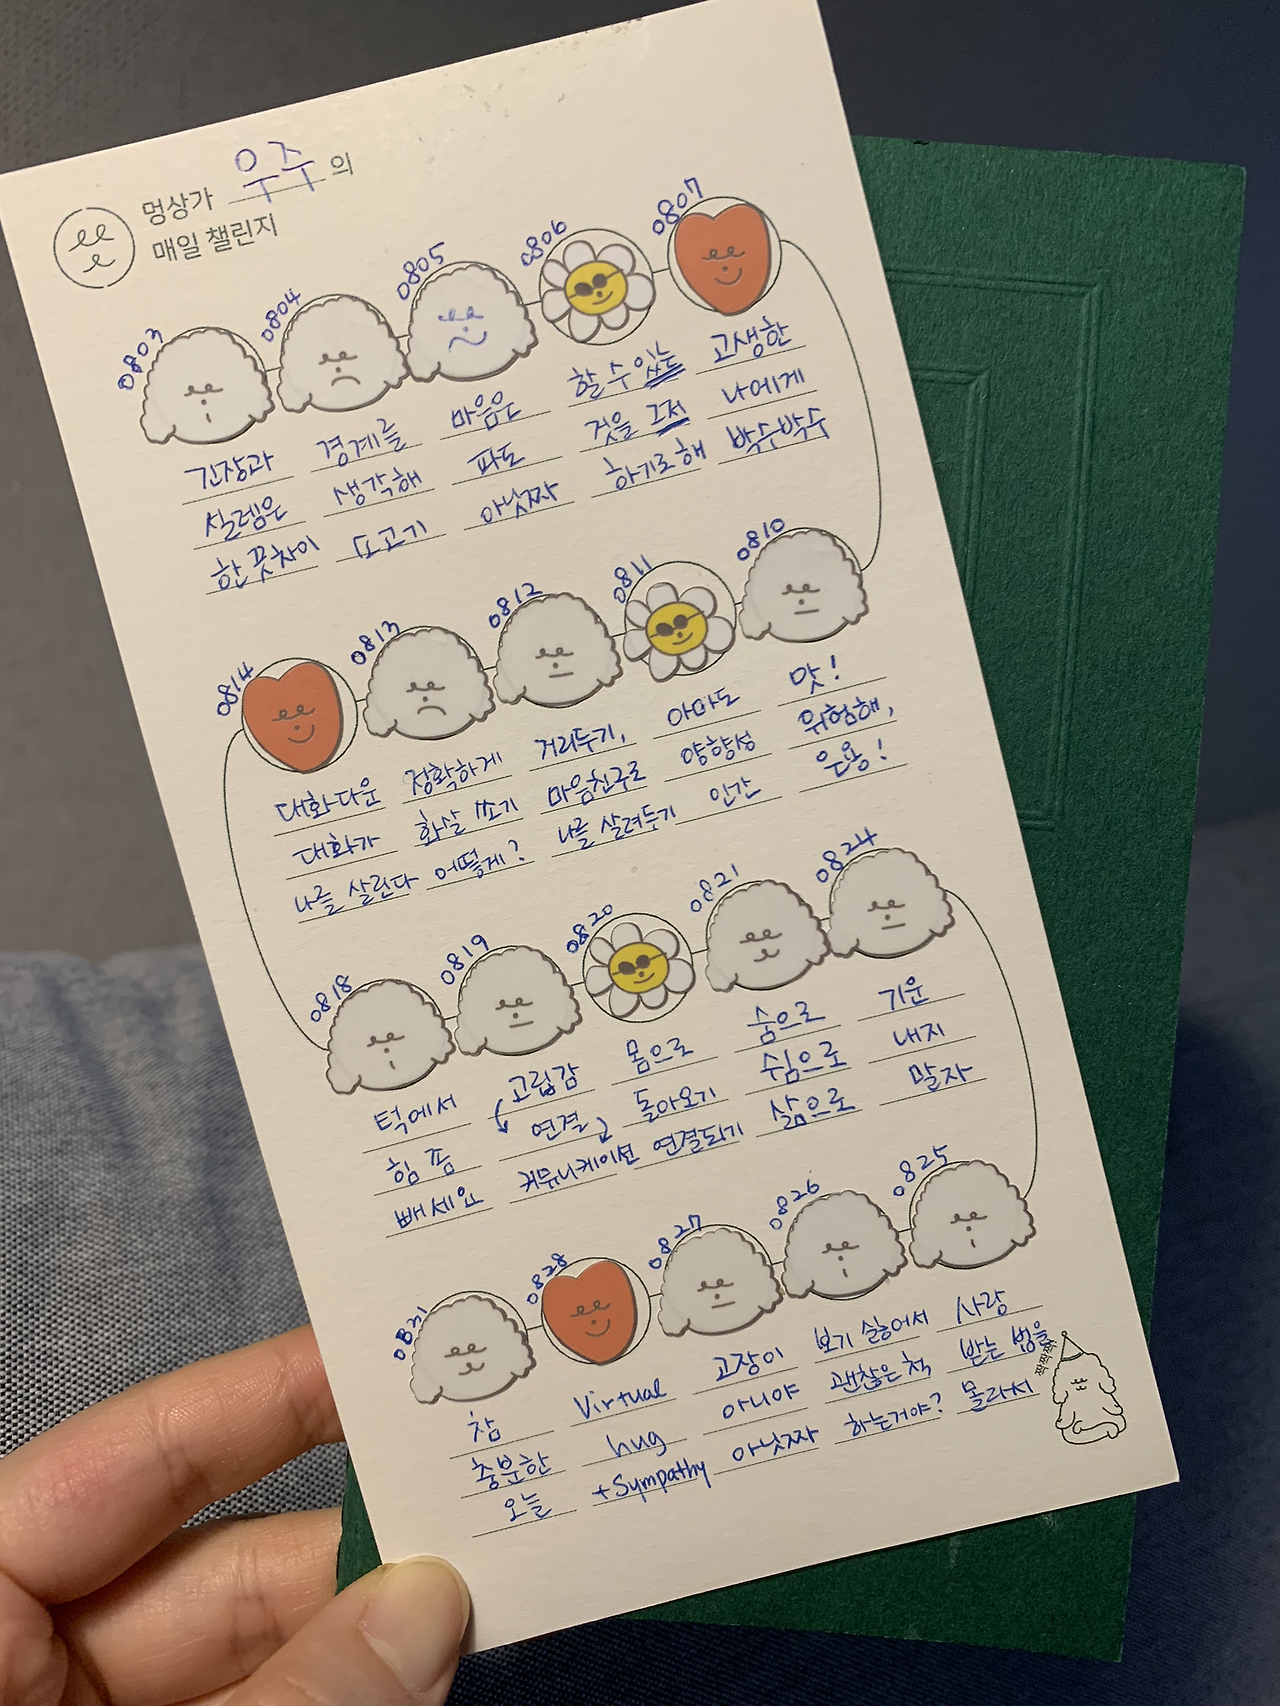 멍상가 우주의
매일 챌린지
0803
긴장과
설렘은
한 끗 차이
0804
경계를
생각해
또 고기
0805
마음은
파도
아닛짜
0806
할 수 있는
것을 그저
하기로 해
0807
고생한
나에게
박수박수
0810
맛!
위험해,
은용!
0811
아마도
양향성
인간
0812
거리두기,
마음친구로
나를 살려두기
0813
정확하게
화살 쏘기
어떻게?
0814
대화다운
대화가
나를 살린다
0818
턱에서
힘 좀
빼세요
0819
고립감
연결
커뮤니케이션
0820
몸으로
돌아오기
연결되기
0821
숨으로
쉼으로
삶으로
0824
기운
내지
말자
0825
사랑
받는 법을
몰라서
0826
보기 싫어서
괜찮은 척
하는거야?
0827
고장이
아니야
아닛짜
0828
Virtual
hug
+Sympathy
0831
참
충분한
오늘
짝짝짝